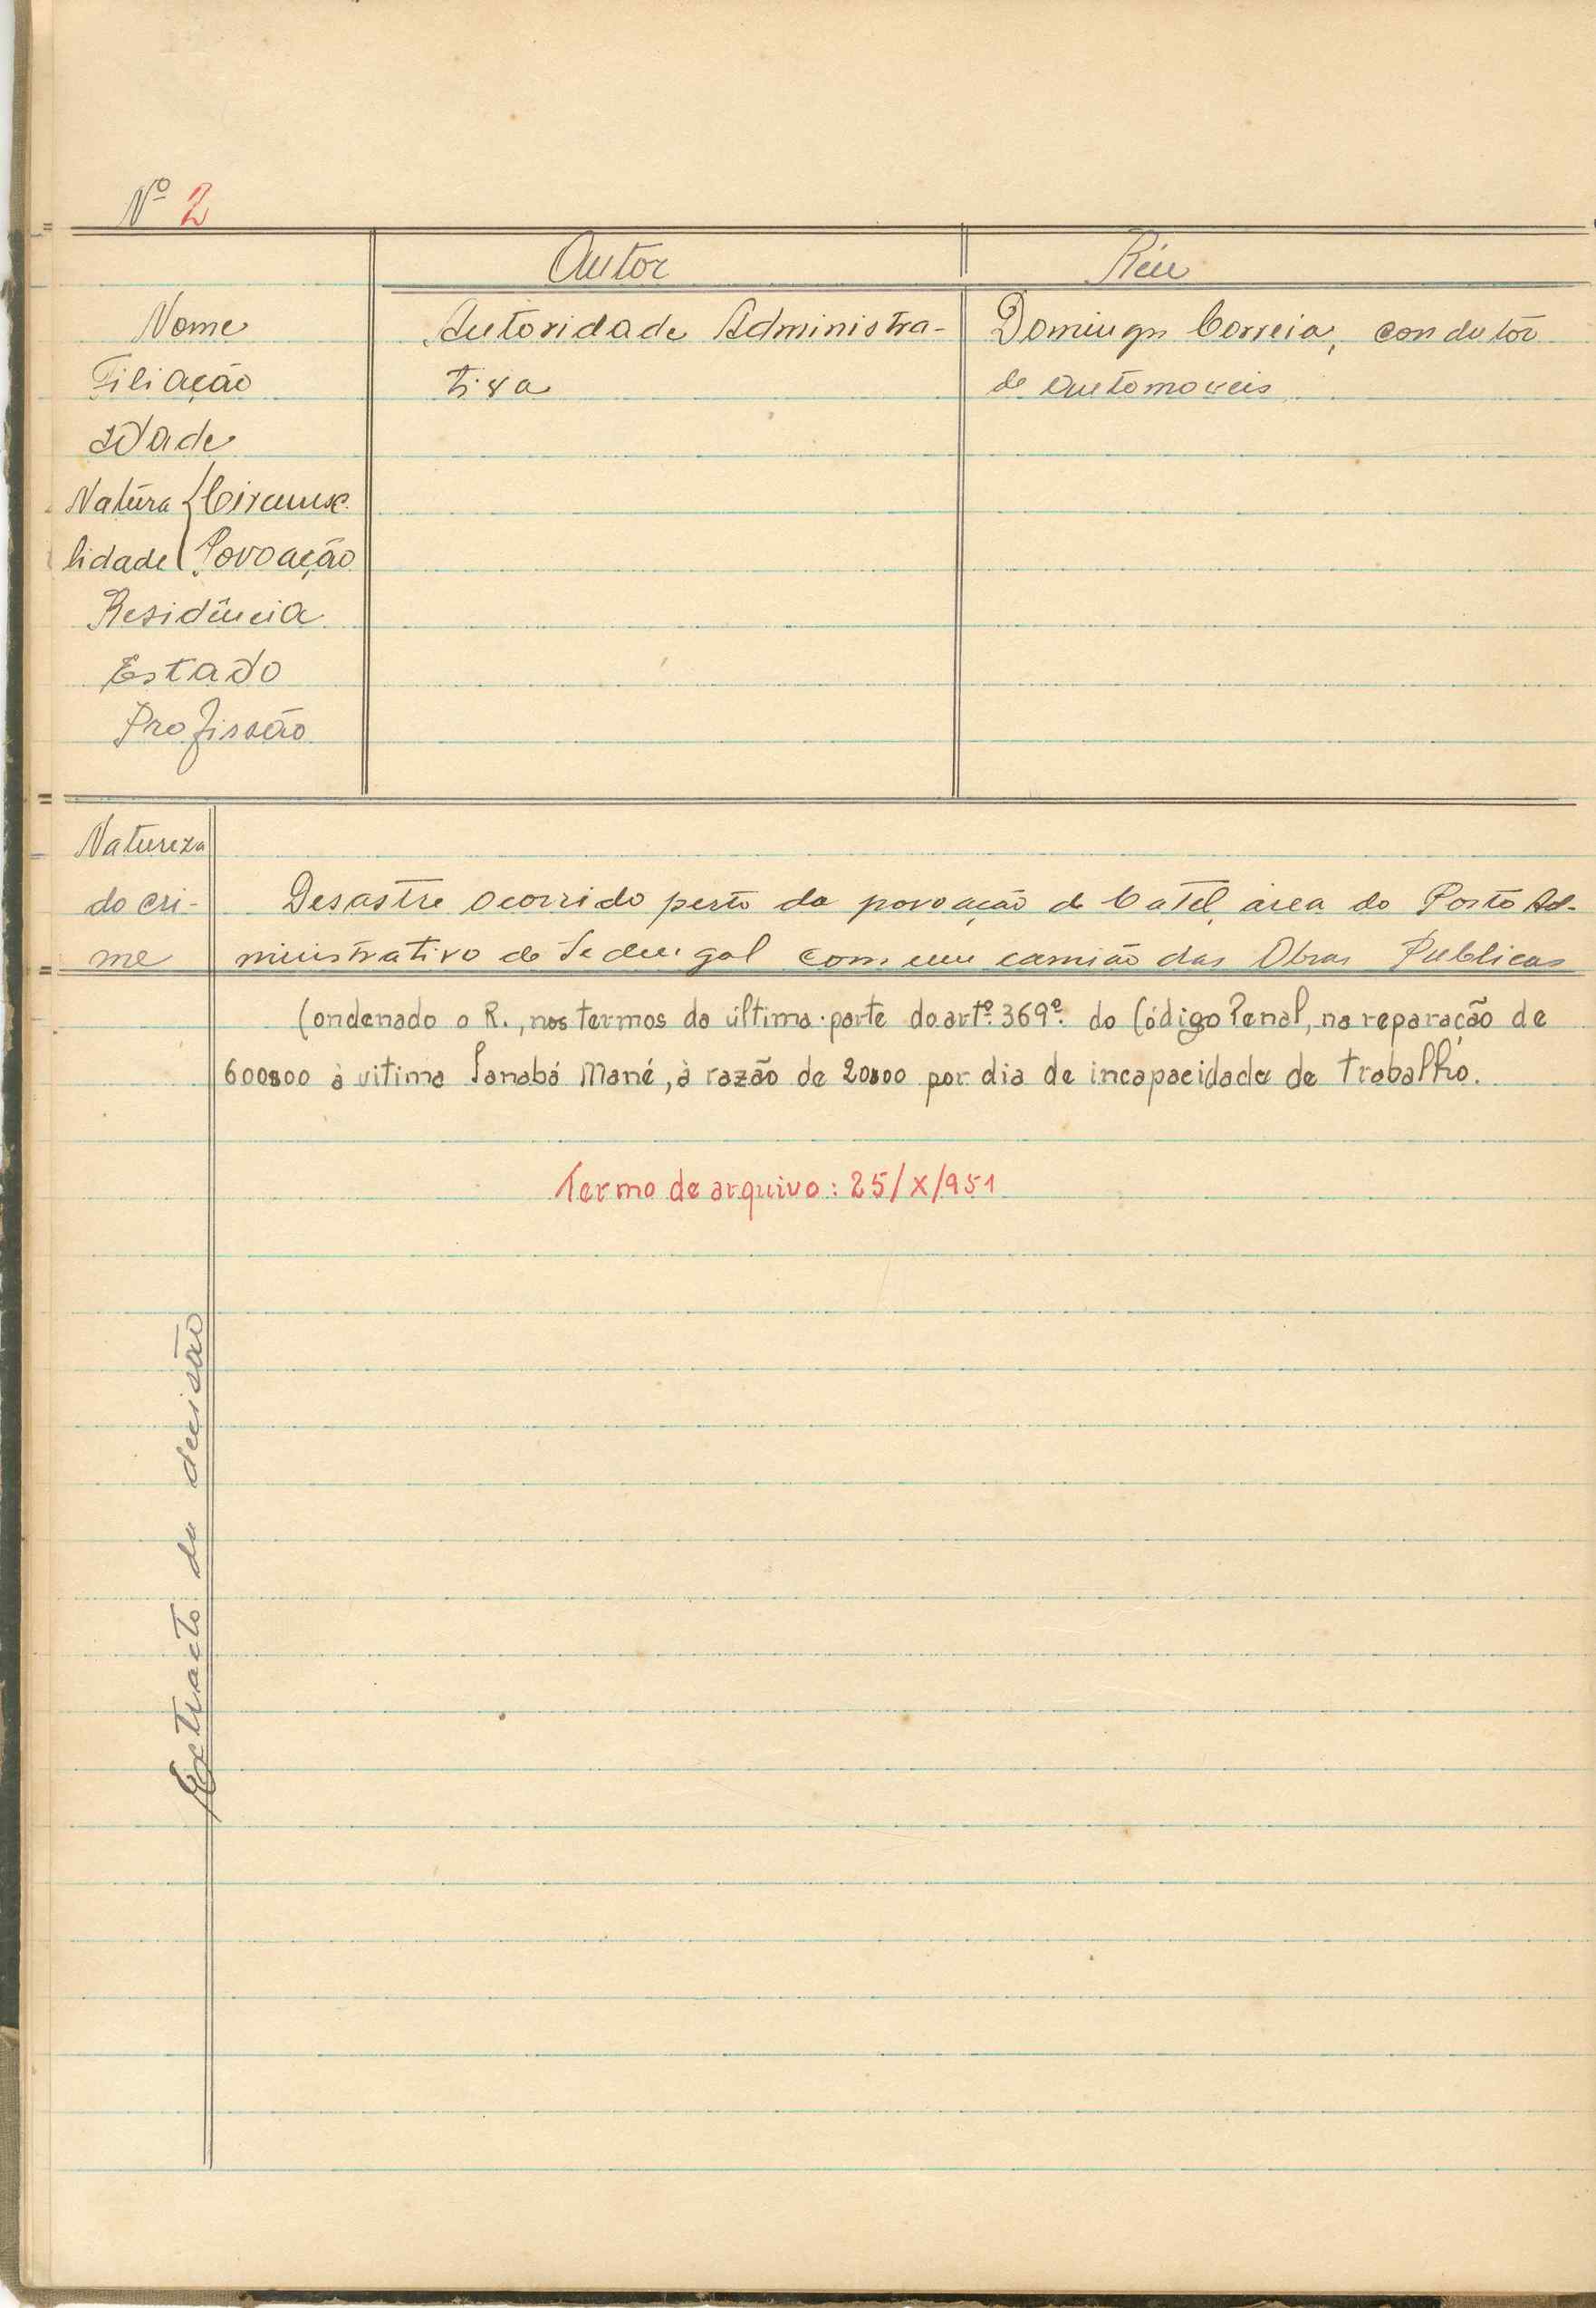 Nº 2
Autor Réu
Nome Autoridade Administra- Domingos Correia, condutor
Filiação tiva de automoveis
Idade
Natura { Circunsc.
lidade { Povoação
Residência
Estado
Profissão
Natureza
do cri- Desastre ocorrido perto da povoação de Catel, área do Posto Ad-
me ministrativo de Sedengal com um camião das Obras Publicas
Condenado o R., nos termos da última parte do artº. 369º. do Código Penal, na reparação de
600$00 à vitima Sanabá Mané, à razão de 20$00 por dia de incapacidade de trabalho.
Termo de arquivo: 25/X/951
Extracto da decisão